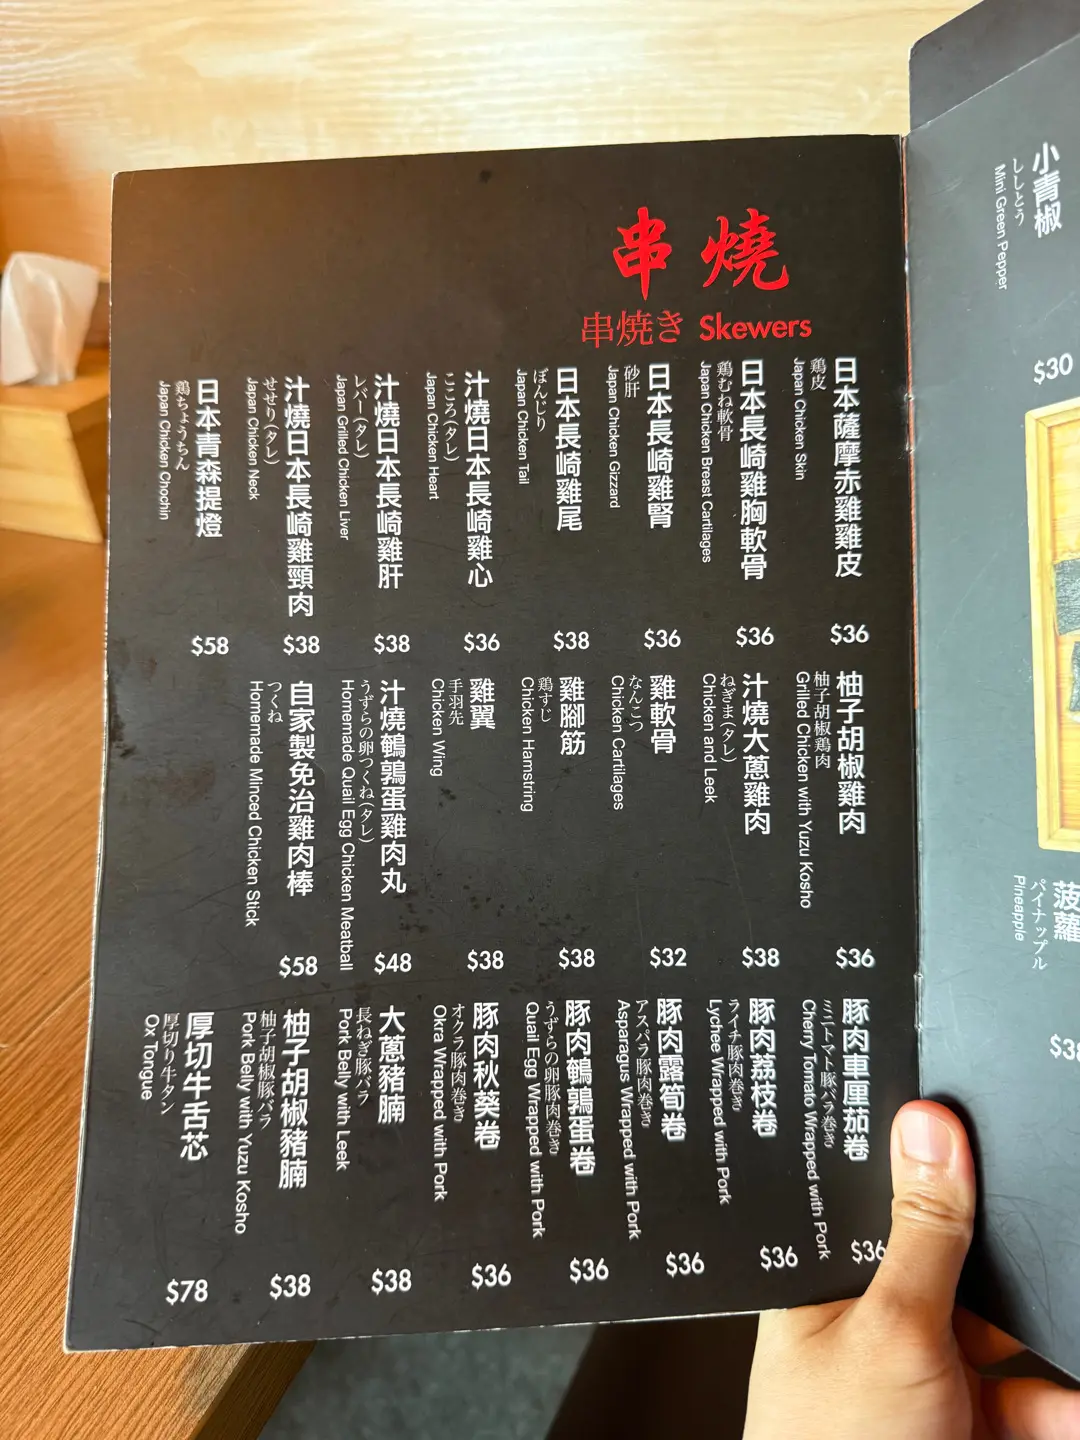 串燒
串焼き Skewers
日本薩摩赤雞雞皮
鶏皮
Japan Chicken Skin
$36
日本長崎雞胸軟骨
鶏むね軟骨
Japan Chicken Breast Cartilages
$36
日本長崎雞腎
砂肝
Japan Chicken Gizzard
$36
日本長崎雞尾
ぼんじり
Japan Chicken Tail
$38
汁燒日本長崎雞心
こころ(タレ)
Japan Chicken Heart
$36
汁燒日本長崎雞肝
レバー(タレ)
Japan Grilled Chicken Liver
$38
汁燒日本長崎雞頸肉
せせり(タレ)
Japan Chicken Neck
$38
日本青森提燈
鶏ちょうちん
Japan Chicken Chochin
$58
柚子胡椒雞肉
柚子胡椒鶏肉
Grilled Chicken with Yuzu Kosho
$36
汁燒大蔥雞肉
ねぎま(タレ)
Chicken and Leek
$38
雞軟骨
なんこつ
Chicken Cartilages
$32
雞腳筋
鶏すじ
Chicken Hamstring
$38
雞翼
手羽先
Chicken Wing
$38
汁燒鵪鶉蛋雞肉丸
うずらの卵つくね(タレ)
Homemade Quail Egg Chicken Meatball
$48
自家製免治雞肉棒
つくね
Homemade Minced Chicken Stick
$58
豚肉車厘茄卷
ミニトマト豚バラ巻き
Cherry Tomato Wrapped with Pork
$36
豚肉荔枝卷
ライチ豚肉巻き
Lychee Wrapped with Pork
$36
豚肉露筍卷
アスパラ豚肉巻き
Asparagus Wrapped with Pork
$36
豚肉鵪鶉蛋卷
うずらの卵豚肉巻き
Quail Egg Wrapped with Pork
$36
豚肉秋葵卷
オクラ豚肉巻き
Okra Wrapped with Pork
$36
大蔥豬腩
長ねぎ豚バラ
Pork Belly with Leek
$38
柚子胡椒豬腩
柚子胡椒豚バラ
Pork Belly with Yuzu Kosho
$38
厚切牛舌芯
厚切り牛タン
Ox Tongue
$78
小青椒
ししとう
Mini Green Pepper
$30
菠蘿
パイナップル
Pineapple
$38